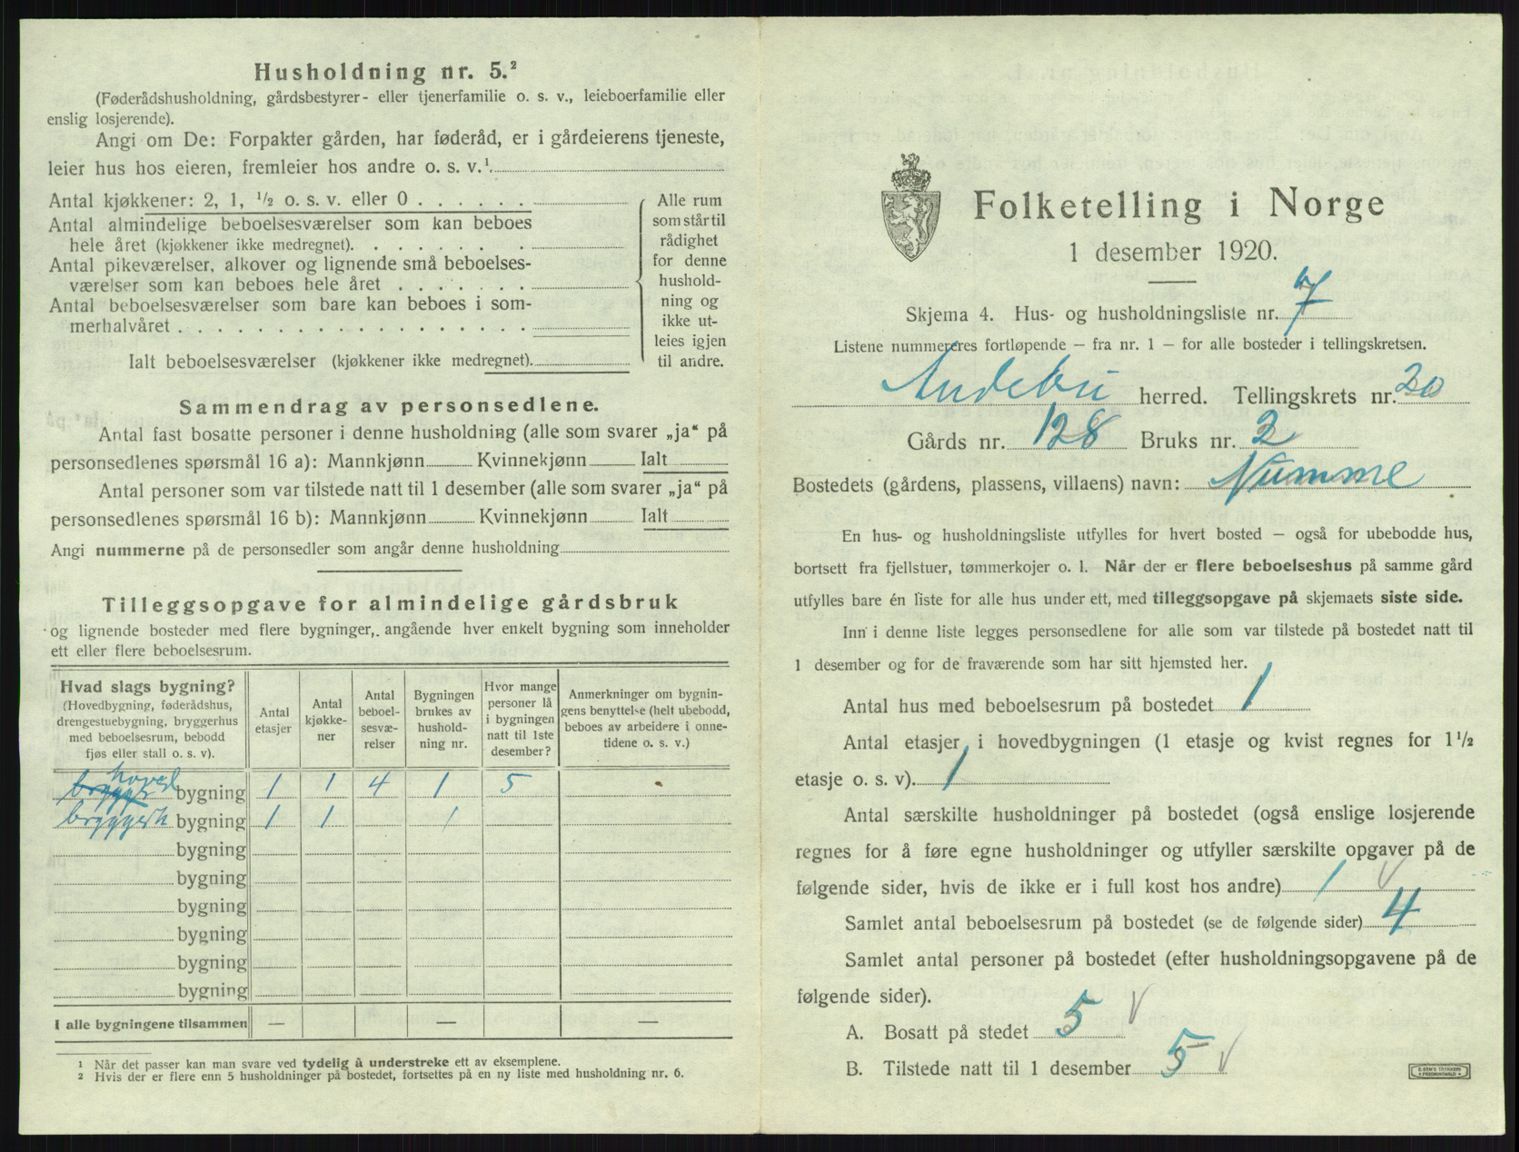 Husholdning nr. 5.²
(Føderådshusholdning, gårdsbestyrer- eller tjenerfamilie o. s. v., leieboerfamilie eller
enslig losjerende).
Angi om De: Forpakter gården, har føderåd, er i gårdeierens tjeneste,
leier hus hos eieren, fremleier hos andre o. s. v.¹
Antal kjøkkener: 2, 1, ½ o. s. v. eller 0
Antal almindelige beboelsesværelser som kan beboes
hele året (kjøkkener ikke medregnet).
Antal pikeværelser, alkover og lignende små beboelses-
værelser som kan beboes hele året
Antal beboelsesværelser som bare kan beboes i som-
merhalvåret
Ialt beboelsesværelser (kjøkkener ikke medregnet).
Alle rum
som står til
rådighet
for denne
hushold-
ning og
ikke ut-
leies igjen
til andre.
Sammendrag av personsedlene.
Antal fast bosatte personer i denne husholdning (alle som svarer „ja“ på
personsedlenes spørsmål 16 a): Mannkjønn Kvinnekjønn Ialt
Antal personer som var tilstede natt til 1 desember (alle som svarer „ja“ på
personsedlenes spørsmål 16 b): Mannkjønn Kvinnekjønn Ialt
Angi nummerne på de personsedler som angår denne husholdning
Tilleggsopgave for almindelige gårdsbruk
og lignende bosteder med flere bygninger, angående hver enkelt bygning som inneholder
ett eller flere beboelsesrum.
Hvad slags bygning?
(Hovedbygning, føderådshus,
drengestuebygning, bryggerhus
med beboelsesrum, bebodd
fjøs eller stall o. s. v).
Antal
etasjer
Antal
kjøkke-
ner
Antal
beboel-
sesvæ-
relser
Bygningen
brukes av
hushold-
ning nr.
Hvor mange
personer lå
i bygningen
natt til 1ste
desember?
Anmerkninger om bygnin-
gens benyttelse (helt ubebodd,
beboes av arbeidere i onne-
tidene o. s. v.)
hoved
brygge bygning 1 1 4 1 5
bryggerh bygning 1 1 1
bygning
bygning
bygning
bygning
bygning
bygning
I alle bygningene tilsammen — — —
1 Når det passer kan man svare ved tydelig å understreke ett av eksemplene.
2 Hvis der er flere enn 5 husholdninger på bostedet, fortsettes på en ny liste med husholdning nr. 6.
Folketelling i Norge
1 desember 1920.
Skjema 4. Hus- og husholdningsliste nr. 7
Listene nummereres fortløpende — fra nr. 1 — for alle bosteder i tellingskretsen.
Andebu herred. Tellingskrets nr. 20
Gårds nr. 128 Bruks nr. 2
Bostedets (gårdens, plassens, villaens) navn: Numme
En hus- og husholdningsliste utfylles for hvert bosted — også for ubebodde hus,
bortsett fra fjellstuer, tømmerkojer o. l. Når der er flere beboelseshus på samme gård
utfylles bare én liste for alle hus under ett, med tilleggsopgave på skjemaets siste side.
Inn i denne liste legges personsedlene for alle som var tilstede på bostedet natt til
1 desember og for de fraværende som har sitt hjemsted her.
Antal hus med beboelsesrum på bostedet 1
Antal etasjer i hovedbygningen (1 etasje og kvist regnes for 1½
etasje o. s. v). 1
Antal særskilte husholdninger på bostedet (også enslige losjerende
regnes for å føre egne husholdninger og utfyller særskilte opgaver på de
følgende sider, hvis de ikke er i full kost hos andre) 1 v
Samlet antal beboelsesrum på bostedet (se de følgende sider) 4
Samlet antal personer på bostedet (efter husholdningsopgavene på de
følgende sider).
A. Bosatt på stedet 5 v
B. Tilstede natt til 1 desember 5 v